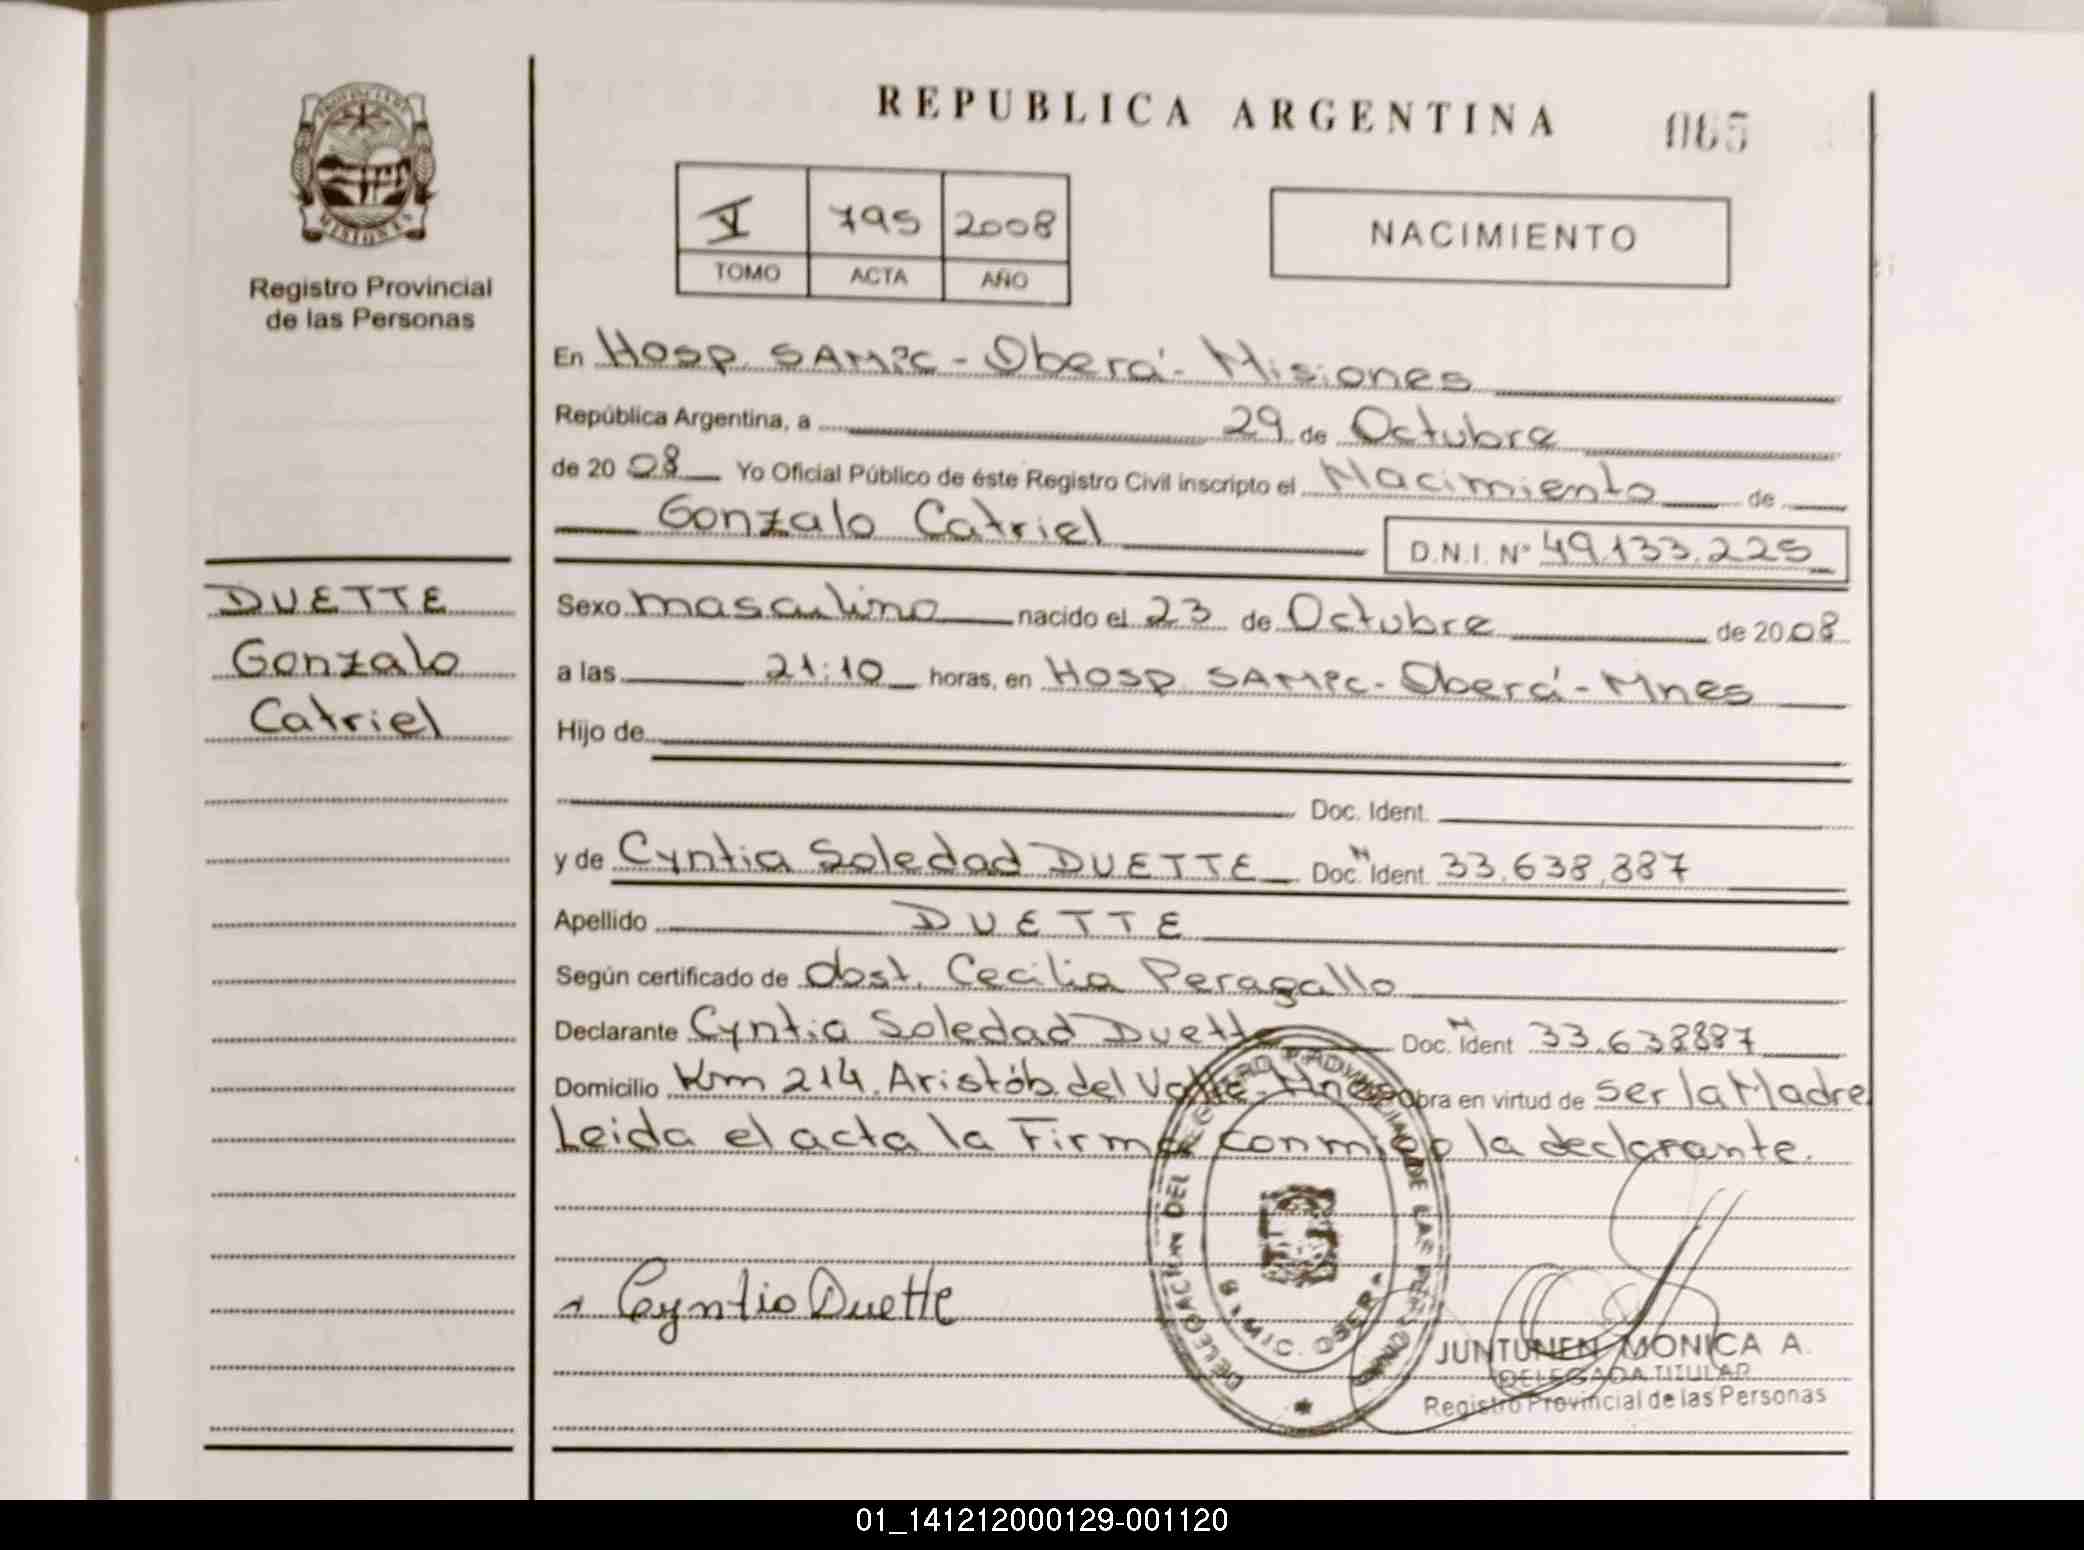 REPUBLICA ARGENTINA
065
PROVINCIA DE
MISIONES
Registro Provincial
de las Personas
V 795 2008
TOMO ACTA AÑO
NACIMIENTO
En Hosp. SAMIC - Oberá - Misiones
República Argentina, a 29 de Octubre
de 20 08 Yo Oficial Público de éste Registro Civil inscripto el Nacimiento de
Gonzalo Catriel D.N.I. Nº 49.133.225
DUETTE
Gonzalo
Catriel
Sexo masculino nacido el 23 de Octubre de 20 08
a las 21:10 horas, en Hosp. SAMIC - Oberá - Mnes
Hijo de
Doc. Ident.
y de Cyntia Soledad DUETTE Doc. Ident. 33.638.887
Apellido DUETTE
Según certificado de Obst. Cecilia Peragallo
Declarante Cyntia Soledad Duette Doc. Ident 33.638887
Domicilio Km 214. Aristób. del Valle - Mnes Obra en virtud de ser la Madre
Leida el acta la Firma conmigo la declarante.
Cyntia Duette
DELEGACION DEL REGISTRO PROVINCIAL DE LAS PERSONAS
JUNTUNEN MONICA A.
DELEGADA TITULAR
Registro Provincial de las Personas
01_141212000129-001120